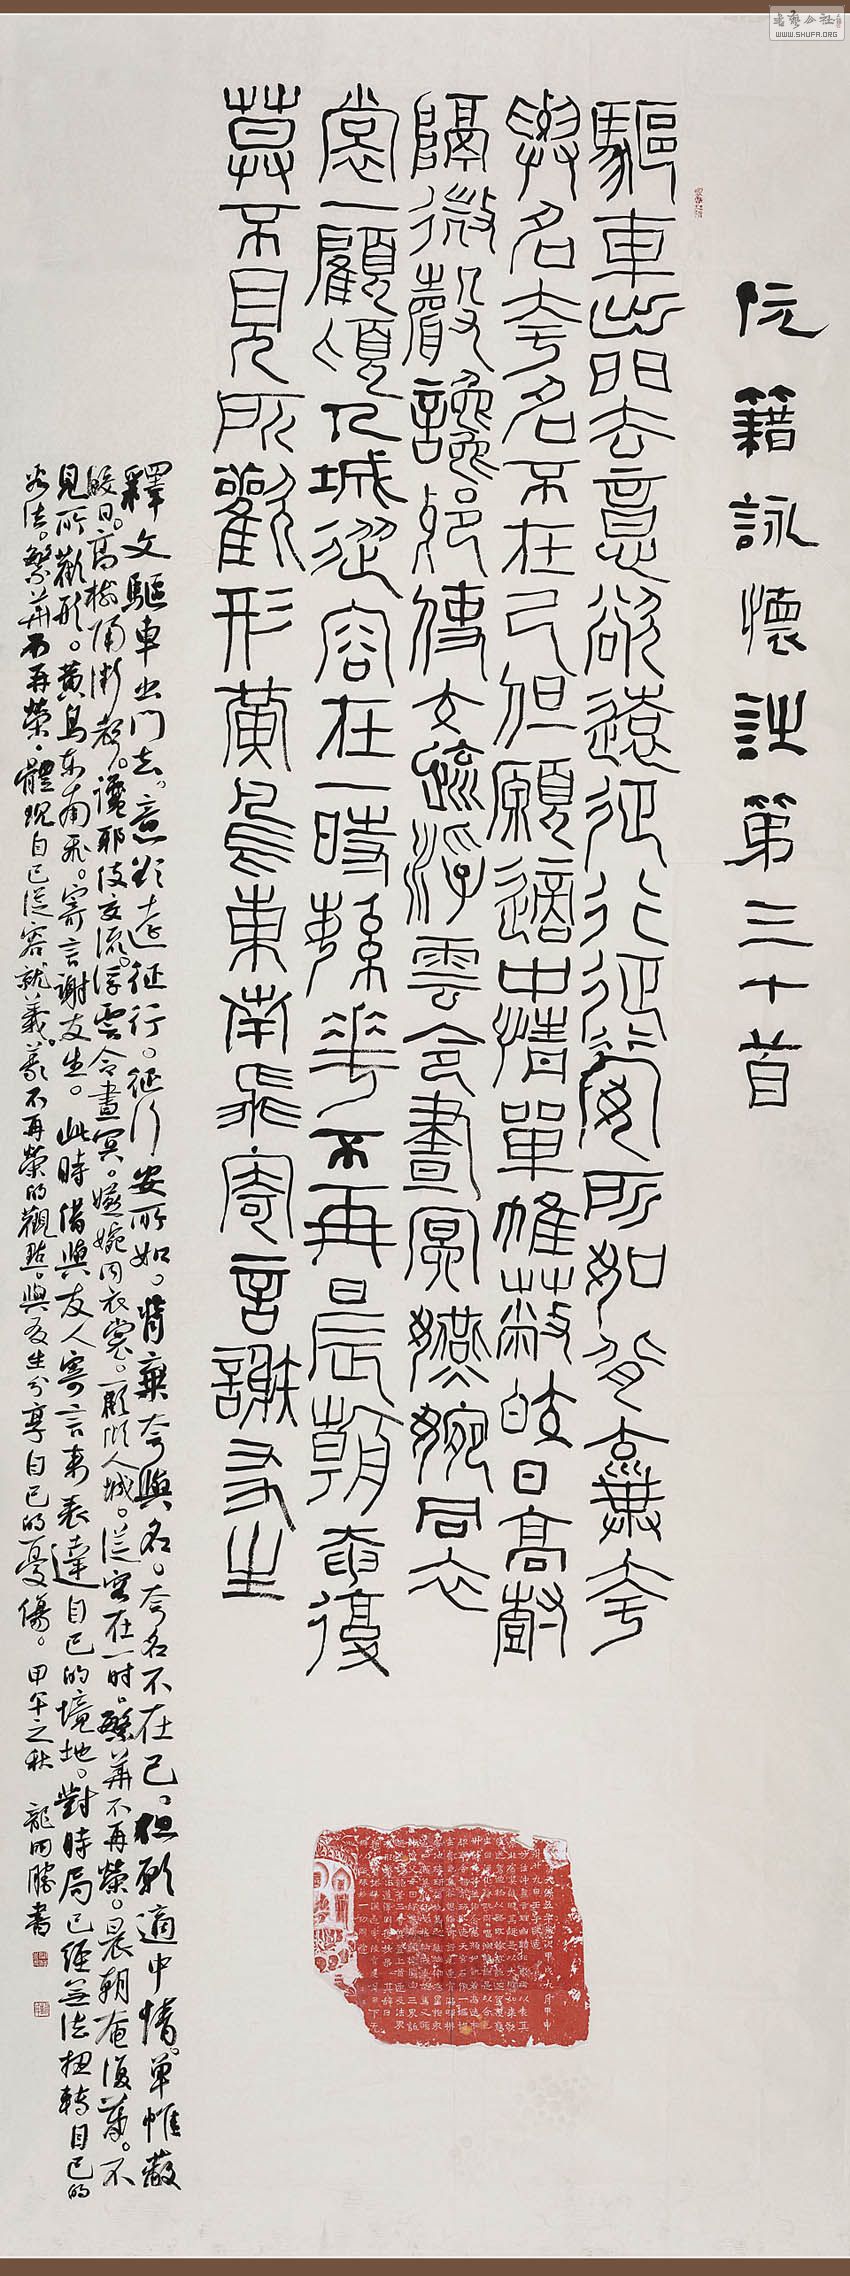 阮籍詠懷詩第三十首
驅車出門去意欲遠征行征行安所如背棄夸
與名夸名不在己但願適中情單帷蔽皎日高樹
隔微聲讒邪使交疏浮雲令晝冥嬿婉同衣
裳一顧傾人城從容在一時繁華不再榮晨朝奄復
暮不見所歡形黃鳥東南飛寄言謝友生
釋文驅車出門去。意欲遠征行。征行安所如。背棄夸與名。夸名不在己。但願適中情。單帷蔽
皎日。高樹隔微聲。讒邪使交流。浮雲令晝冥。嬿婉同衣裳。一顧傾人城。從容在一時。繁華不再榮。晨朝奄復暮。不
見所歡形。黃鳥東南飛。寄言謝友生。此時借與友人寄言來表達自己的境地。對時局已經無法扭轉自己的
看法。繁華而再榮。體現自己從容就義。義不再榮的觀點。與友生分享自己的憂傷。甲午之秋 龍田勝書
书艺公社
WWW.SHUFA.ORG